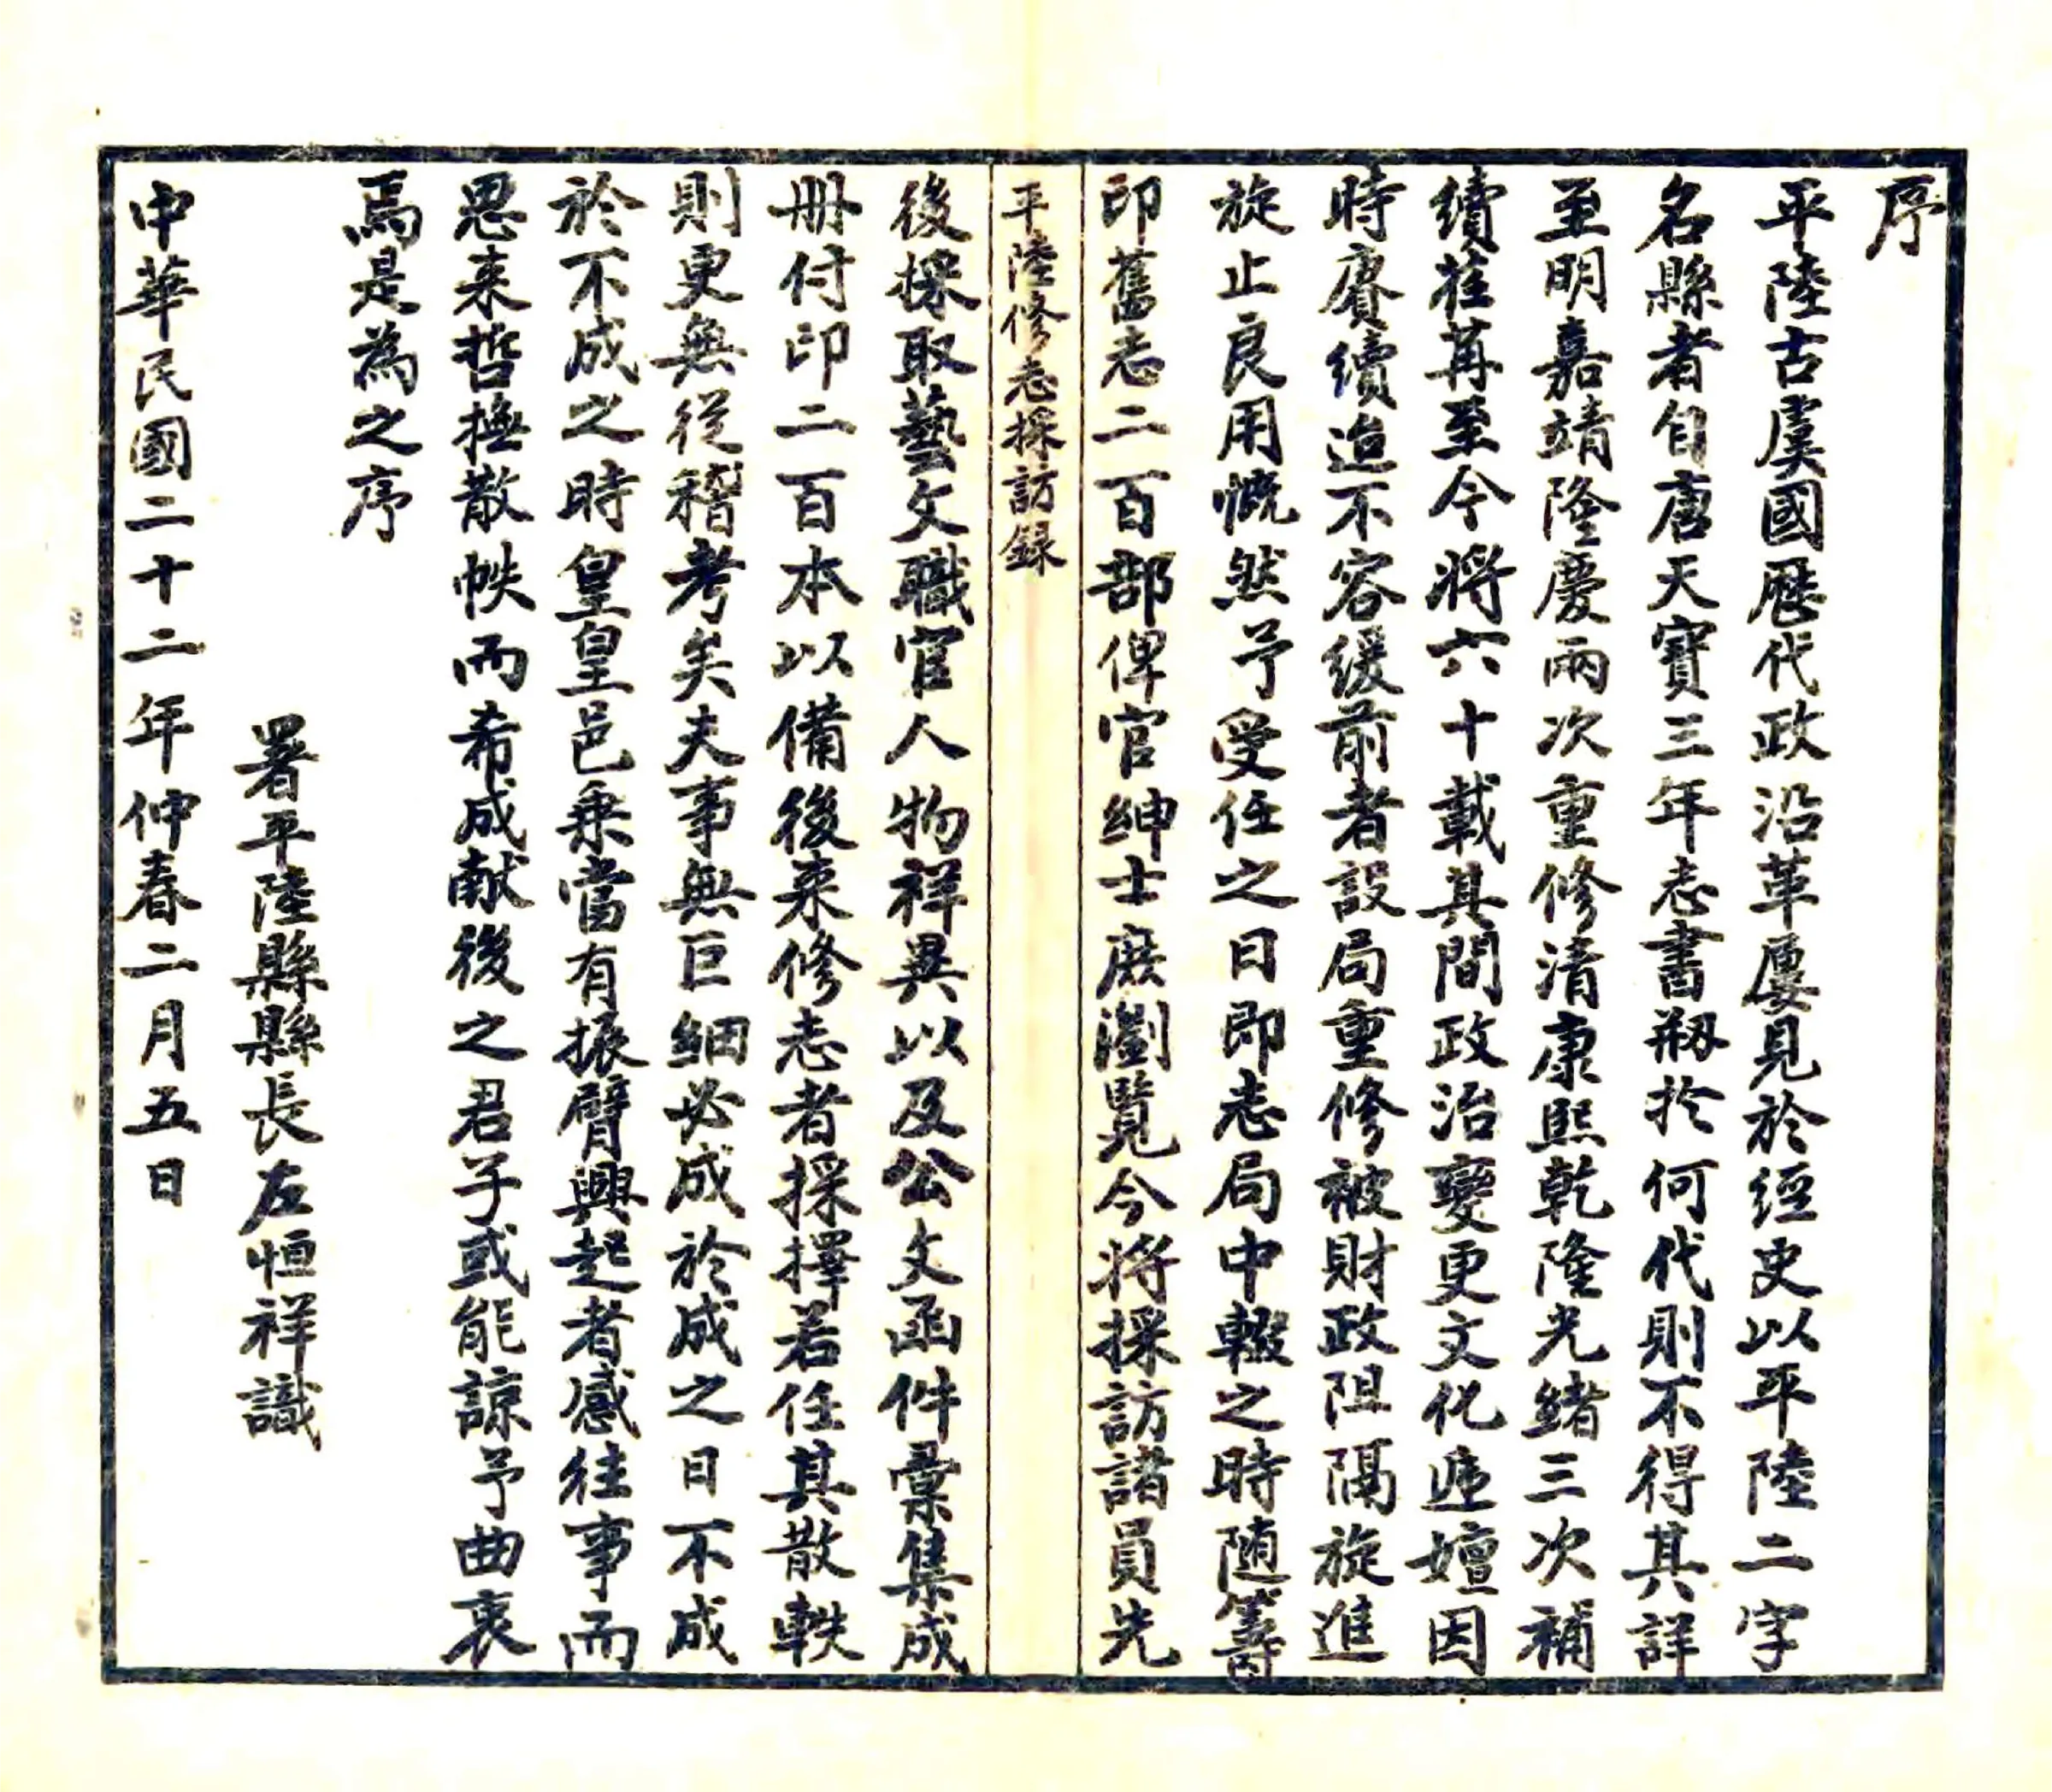 序
平陸古虞國歷代政沿革屢見於經史以平陸二字
名縣者自唐天寶三年志書刱於何代則不得其詳
至明嘉靖隆慶兩次重修清康熙乾隆光緒三次補
續荏苒至今將六十載其間政治變更文化遞嬗因
時賡續迨不容緩前者設局重修被財政阻隔旋進
旋止良用慨然予受任之日即志局中輟之時随籌
印舊志二百部俾官紳士庶瀏覽今將採訪諸員先
平陸修志採訪録
後採取藝文職官人物祥異以及公文函件彙集成
册付印二百本以備後来修志者採擇若任其散軼
則更無從稽考矣夫事無巨細必成於成之日不成
於不成之時皇皇邑乗當有振臂興起者感往事而
思来哲撫散帙而希成献後之君子或能諒予曲衷
焉是為之序
署平陸縣縣長左恒祥識
中華民國二十二年仲春二月五日